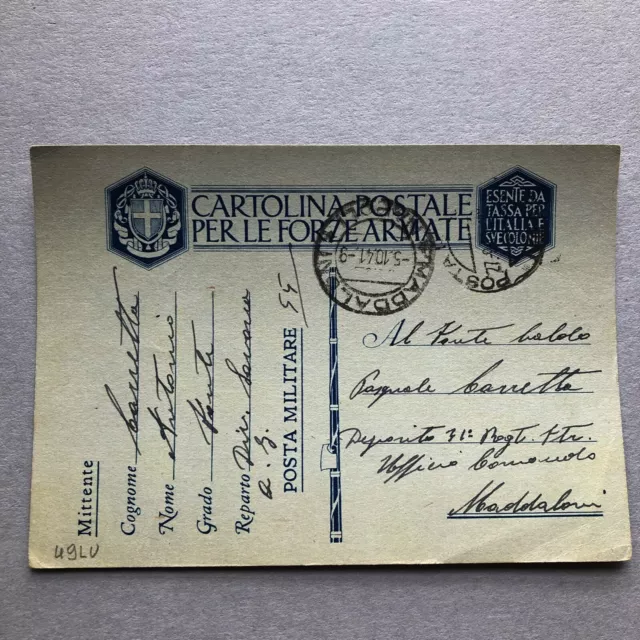 CARTOLINA POSTALE
PER LE FORZE ARMATE
ESENTE DA
TASSA PER
L'ITALIA E
COLONIE
MADDALONI
-5.10.41-9
POSTA
Mittente
Cognome Carretta
Nome Antonio
Grado Fante
Reparto
POSTA MILITARE 55
Al Fante
Pasquale Carretta
Deposito 31° Regt. Ftr.
Ufficio Comando
Maddaloni
49LU